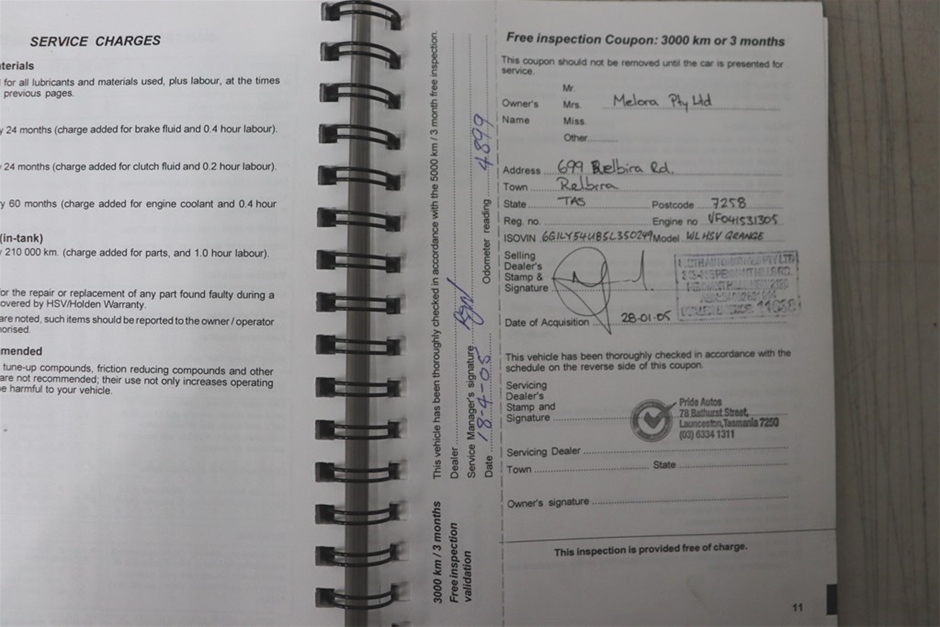 SERVICE CHARGES
terials
for all lubricants and materials used, plus labour, at the times
previous pages.
y 24 months (charge added for brake fluid and 0.4 hour labour).
24 months (charge added for clutch fluid and 0.2 hour labour).
y 60 months (charge added for engine coolant and 0.4 hour
(in-tank)
210 000 km. (charge added for parts, and 1.0 hour labour).
or the repair or replacement of any part found faulty during a
overed by HSV/Holden Warranty.
are noted, such items should be reported to the owner / operator
orised.
mended
tune-up compounds, friction reducing compounds and other
are not recommended; their use not only increases operating
e harmful to your vehicle.
3000 km / 3 months
Free inspection
validation
This vehicle has been thoroughly checked in accordance with the 5000 km / 3 month free inspection.
Dealer
Service Manager's signature
Date 18-4-05 Odometer reading 4899
Free inspection Coupon: 3000 km or 3 months
This coupon should not be removed until the car is presented for
service.
Mr.
Owner's Mrs. Melora Pty Ltd
Name Miss.
Other
Address 699 Relbira Rd.
Town Relbira
State TAS Postcode 7258
Reg. no. Engine no VF041531305
ISOVIN 6G1LY54U85L350249 Model WL HSV GRANGE
Selling
Dealer's
Stamp &
Signature
Date of Acquisition 28-01-05
This vehicle has been thoroughly checked in accordance with the
schedule on the reverse side of this coupon.
Servicing
Dealer's
Stamp and
Signature
Pride Autos
78 Bathurst Street,
Launceston, Tasmania 7250
(03) 6334 1311
Servicing Dealer
Town State
Owner's signature
This inspection is provided free of charge.
11